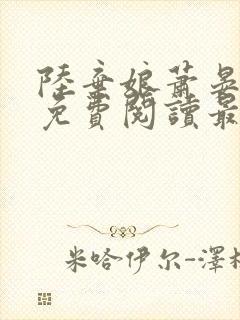 陸棄娘蕭晏
免費閱讀最
米哈伊尔-澤林